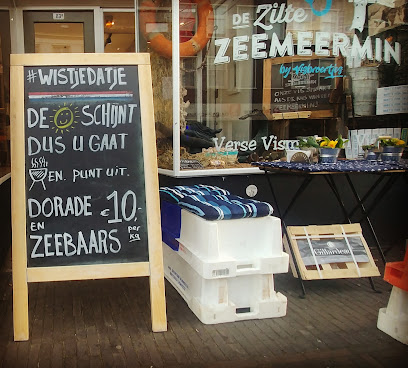 #WISTJEDATJE
DE SCHIJNT
DUS U GAAT
EN. PUNT UIT.
DORADE €10,-
EN per kg
ZEEBAARS
DE Zilte
ZEEMEERMIN
by visbroertjes
Verse Vism